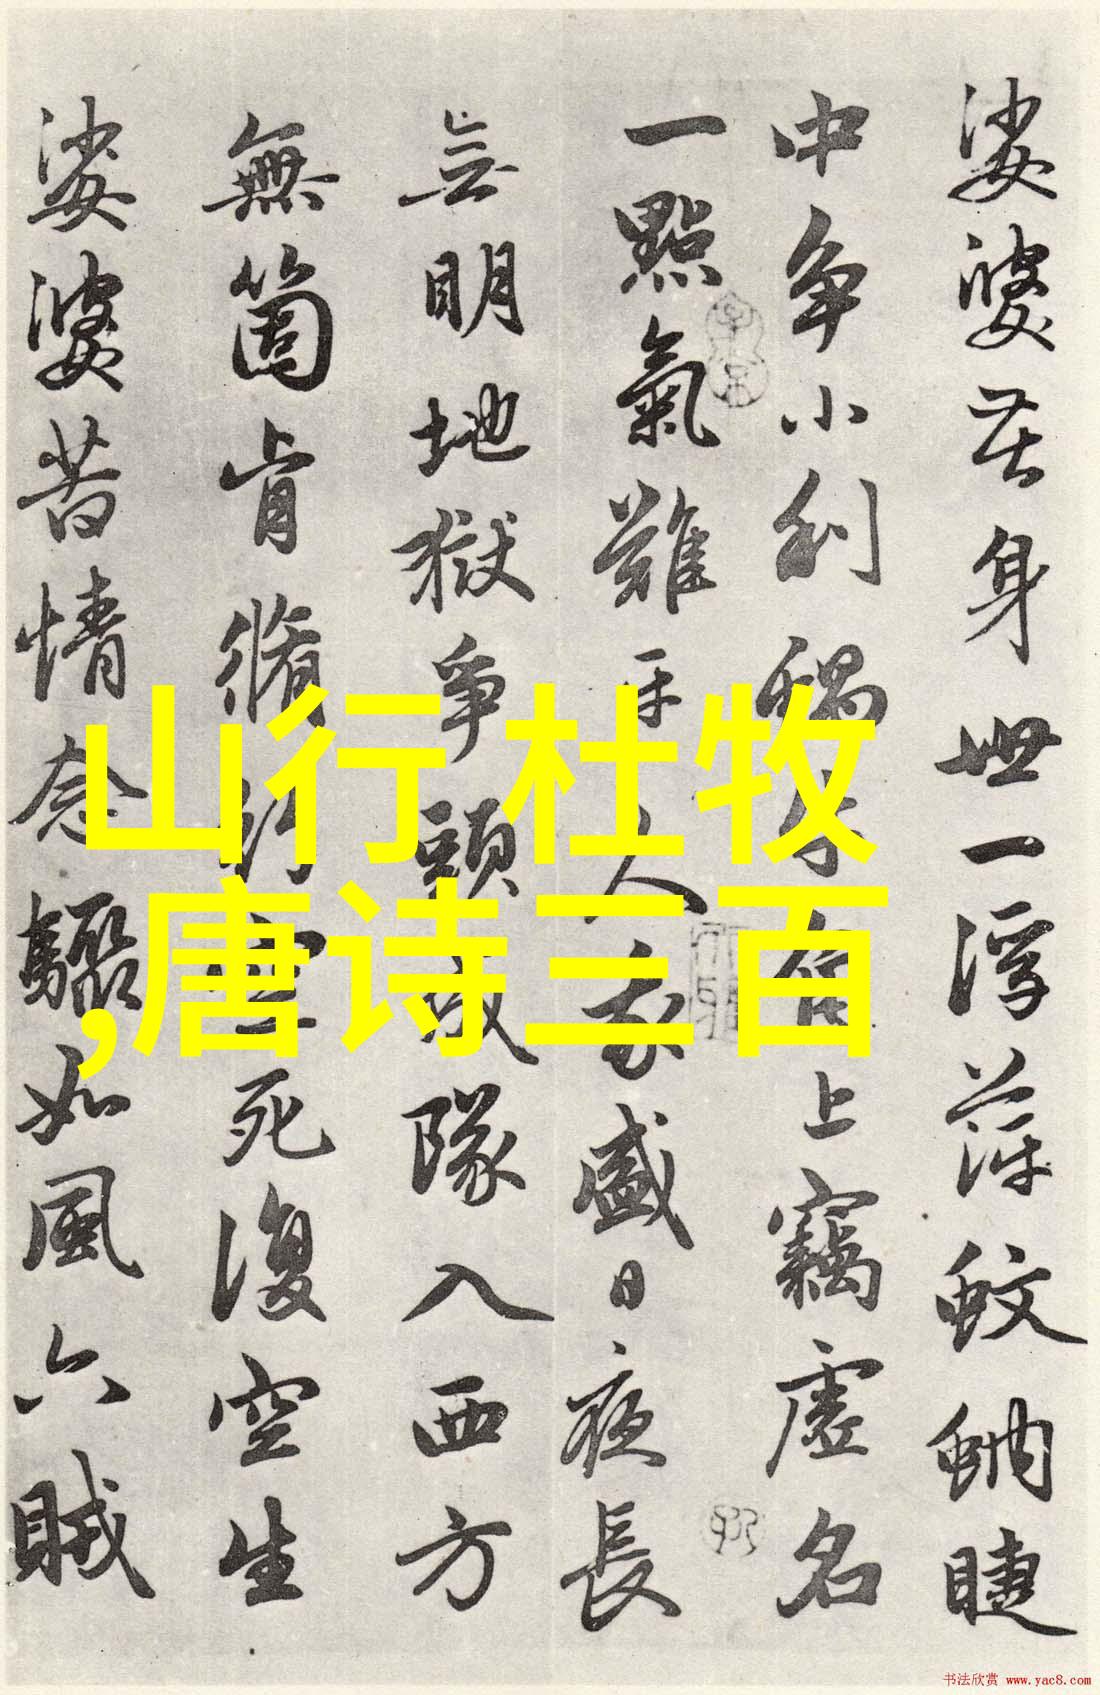 娑婆苦身世一浮萍蚊蚋睫
中争小利蝸牛角上竊虛名
一點氣難平人我盛日夜長
無明地獄爭頭成隊入西方
無箇肯脩行空死復空生
娑婆苦情念驟如風六賊
山行 杜牧
,唐诗三百
书法欣赏 www.yac8.com